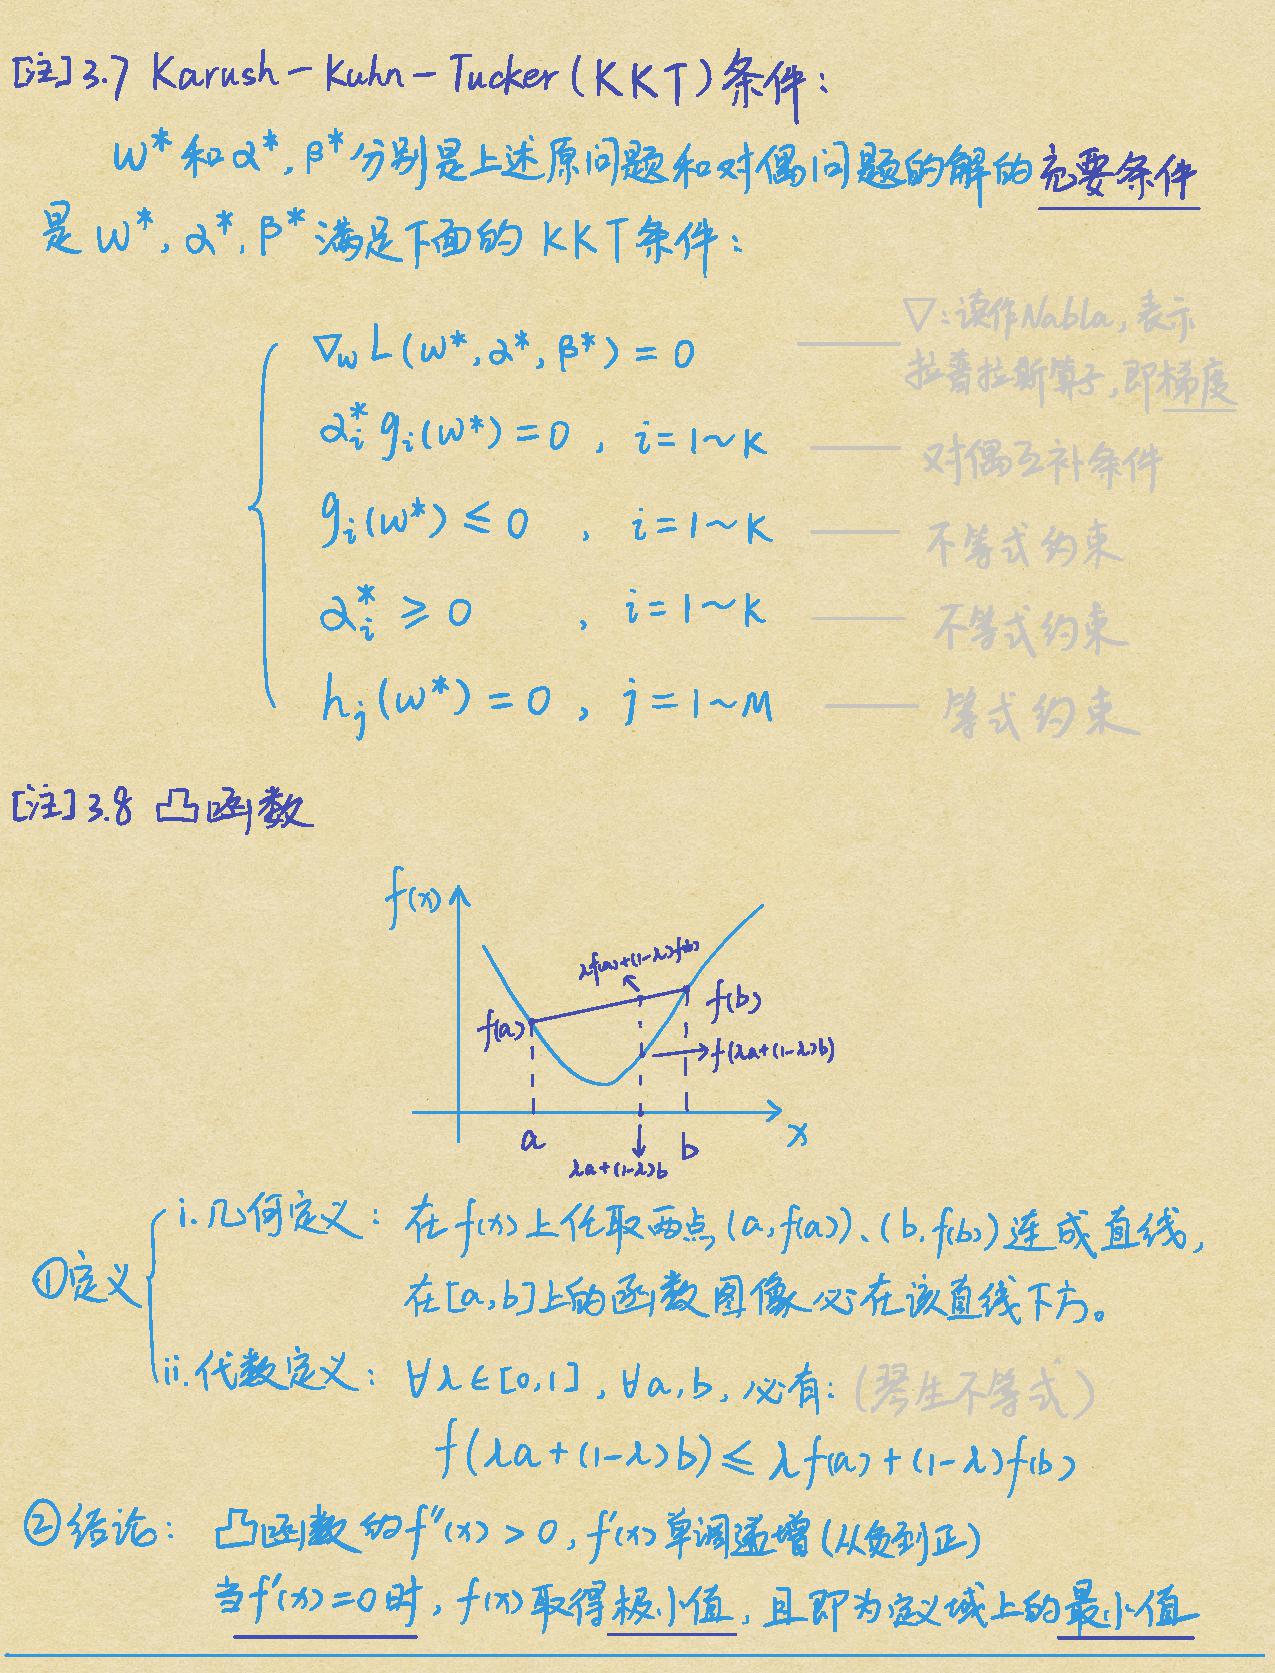 [注]3.7 Karush-Kuhn-Tucker(KKT)条件:
w*和α*,β*分别是上述原问题和对偶问题的解的充要条件
是w*,α*,β*满足下面的KKT条件:
∇wL(w*,α*,β*)=0
∇:读作Nabla,表示
拉普拉斯算子,即梯度
αi*gi(w*)=0, i=1~K
对偶互补条件
gi(w*)≤0, i=1~K
不等式约束
αi*≥0, i=1~K
不等式约束
hj(w*)=0, j=1~M
等式约束
[注]3.8 凸函数
f(x)
λf(a)+(1-λ)f(b)
f(a)
f(b)
f(λa+(1-λ)b)
a
b
x
λa+(1-λ)b
①定义
i.几何定义: 在f(x)上任取两点(a,f(a))、(b,f(b))连成直线,
在[a,b]上的函数图像必在该直线下方。
ii.代数定义: ∀λ∈[0,1],∀a,b,必有:(琴生不等式)
f(λa+(1-λ)b)≤λf(a)+(1-λ)f(b)
②结论: 凸函数的f''(x)>0,f'(x)单调递增(从负到正)
当f'(x)=0时,f(x)取得极小值,且即为定义域上的最小值